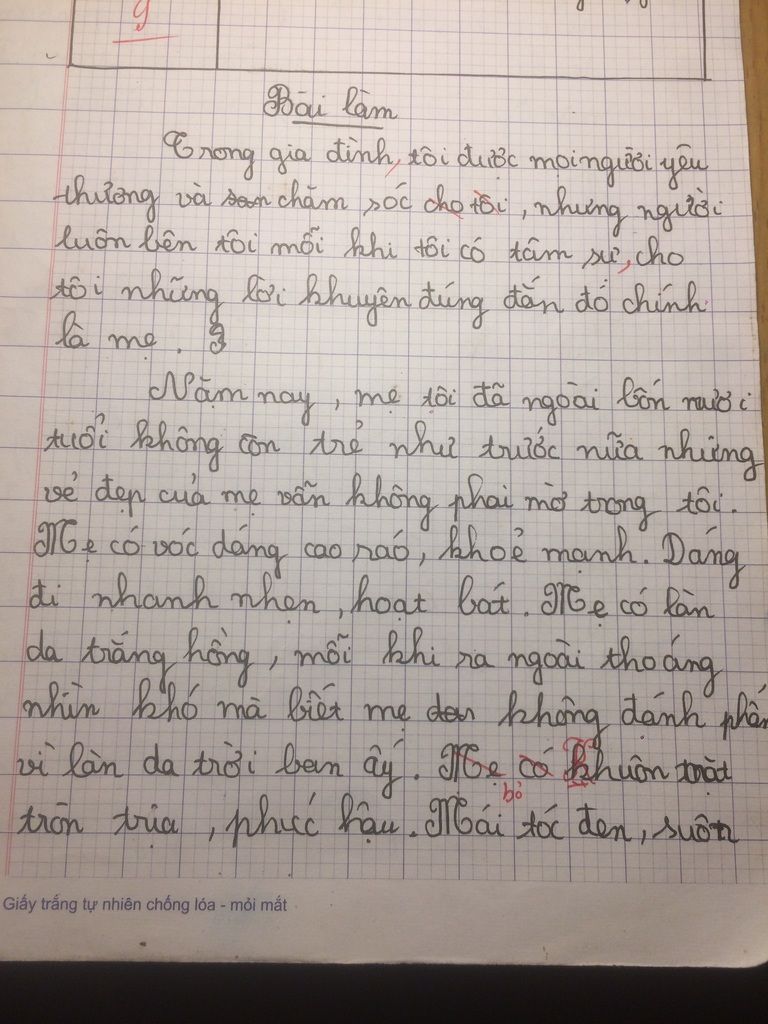 9
Bài làm
Trong gia đình, tôi được mọi người yêu
thương và chăm sóc cho tôi, nhưng người
luôn bên tôi mỗi khi tôi có tâm sự, cho
tôi những lời khuyên đúng đắn đó chính
là mẹ.
Năm nay, mẹ tôi đã ngoài bốn mươi
tuổi không còn trẻ như trước nữa nhưng
vẻ đẹp của mẹ vẫn không phai mờ trong tôi.
Mẹ có vóc dáng cao ráo, khoẻ mạnh. Dáng
đi nhanh nhẹn, hoạt bát. Mẹ có làn
da trắng hồng, mỗi khi ra ngoài thoáng
nhìn khó mà biết mẹ không đánh phấn
vì làn da trời ban ấy. Mẹ có khuôn mặt
bỏ
tròn trịa, phúc hậu. Mái tóc đen, suôn
Giấy trắng tự nhiên chống lóa - mỏi mắt